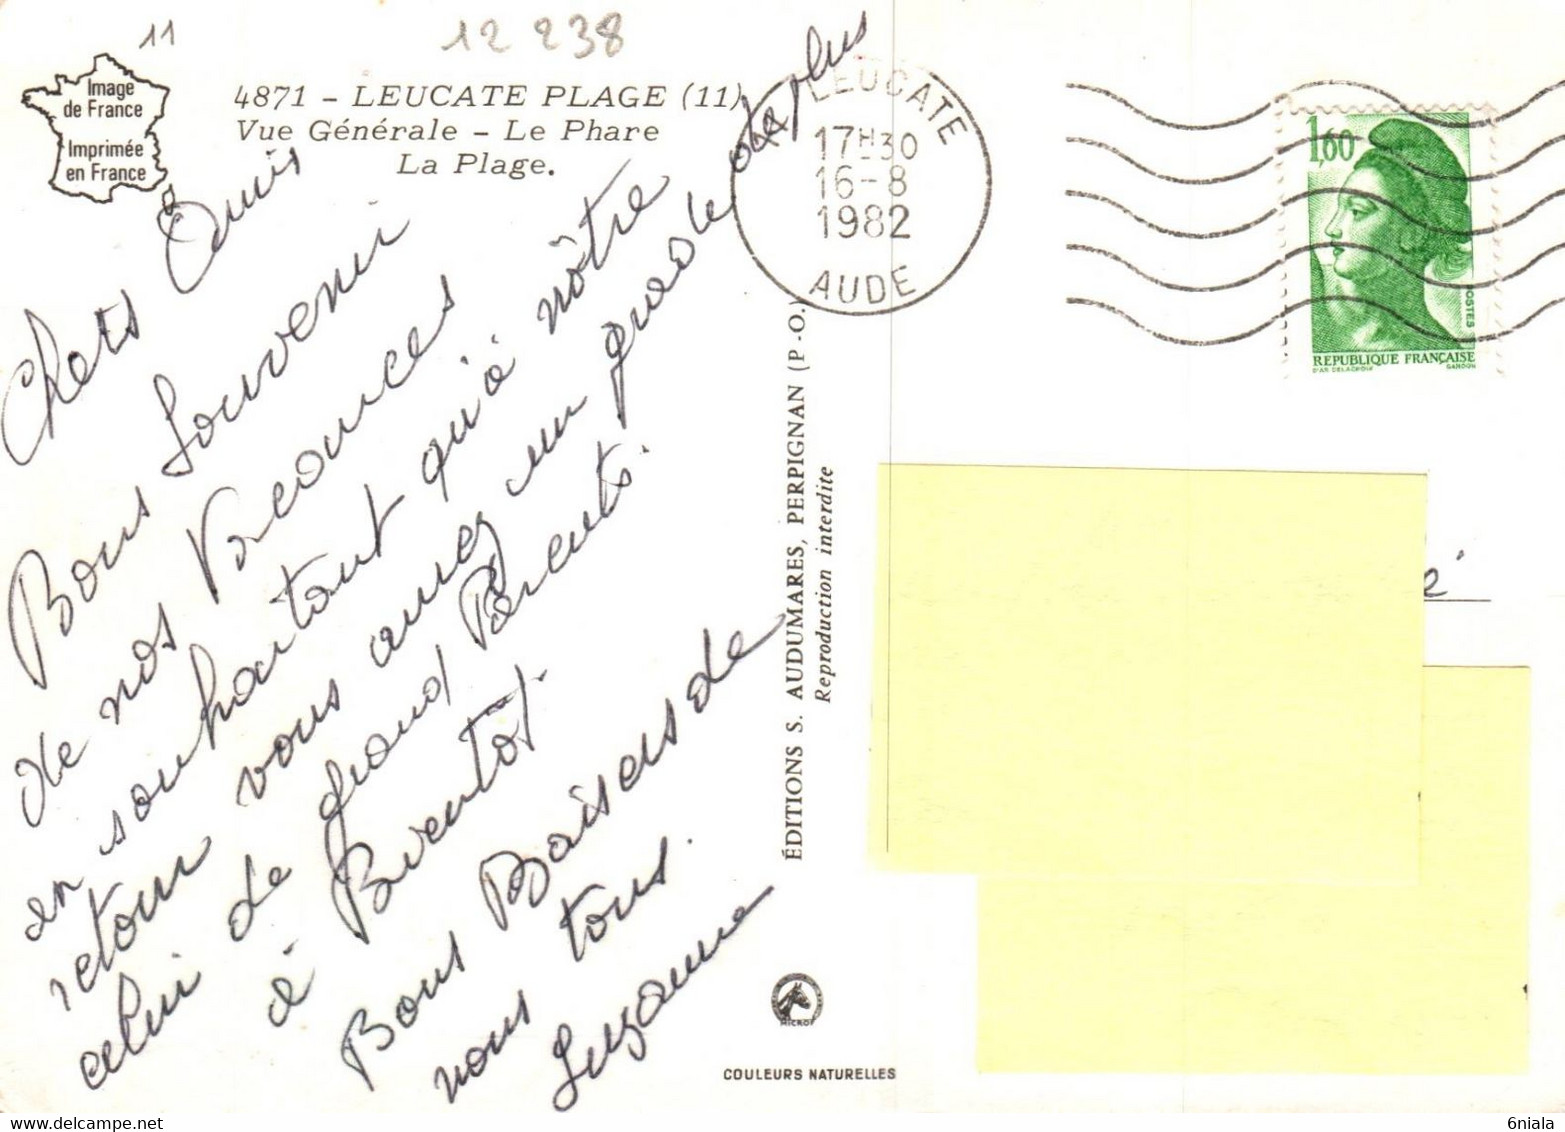 11
12 238
Image
de France
Imprimée
en France
4871 - LEUCATE PLAGE (11)
Vue Générale - Le Phare
La Plage.
Chers Amis
Bons Souvenir
de nos Vacances
en souhaitant qu'à nôtre
retour vous aurez un grade de plus
celui de grand Parents.
à Bientôt.
Bons Baisers de
nous tous.
Suzanne
ÉDITIONS S. AUDUMARES, PERPIGNAN (P.-O.)
Reproduction interdite
COULEURS NATURELLES
LEUCATE
17H30
16-8
1982
AUDE
1,60
POSTES
REPUBLIQUE FRANÇAISE
D'AP. DELACROIX GANDON
é
6niala